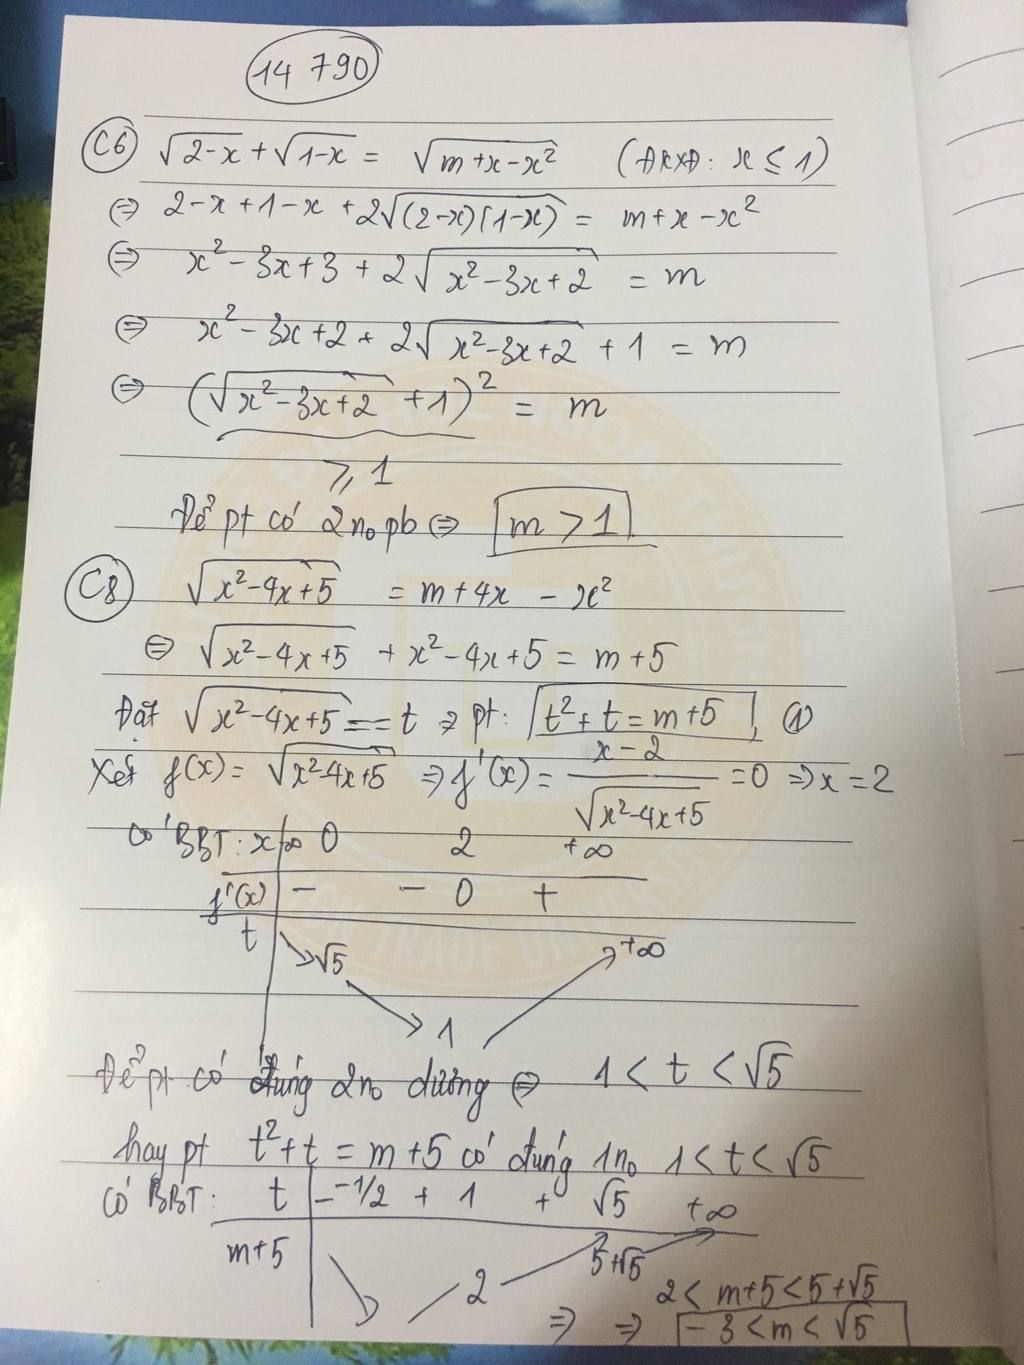 14 790
C6 √2-x + √1-x = √m+x-x² (ĐKXĐ: x ≤ 1)
⇔ 2-x+1-x+2√(2-x)(1-x) = m+x-x²
⇔ x²-3x+3+2√x²-3x+2 = m
⇔ x²-3x+2+2√x²-3x+2 +1 = m
⇔ (√x²-3x+2 +1)² = m
⩾ 1
Để pt có 2 no pb ⇔ m > 1
C8 √x²-4x+5 = m+4x - x²
⇔ √x²-4x+5 + x²-4x+5 = m+5
Đặt √x²-4x+5 = t ⇒ pt: t²+t=m+5 ①
Xét f(x)= √x²-4x+5 ⇒ f'(x) = x-2 / √x²-4x+5 = 0 ⇒ x = 2
có BBT: x -∞ 0 2 +∞
f'(x) - - 0 +
t √5 1 +∞
Để pt có đúng 2 no dương ⇔ 1 < t < √5
hay pt t²+t = m+5 có đúng 1 no 1 < t < √5
có BBT: t - -1/2 + 1 + √5 +∞
m+5 2 5+√5
⇒ 2 < m+5 < 5+√5
⇒ -3 < m < √5